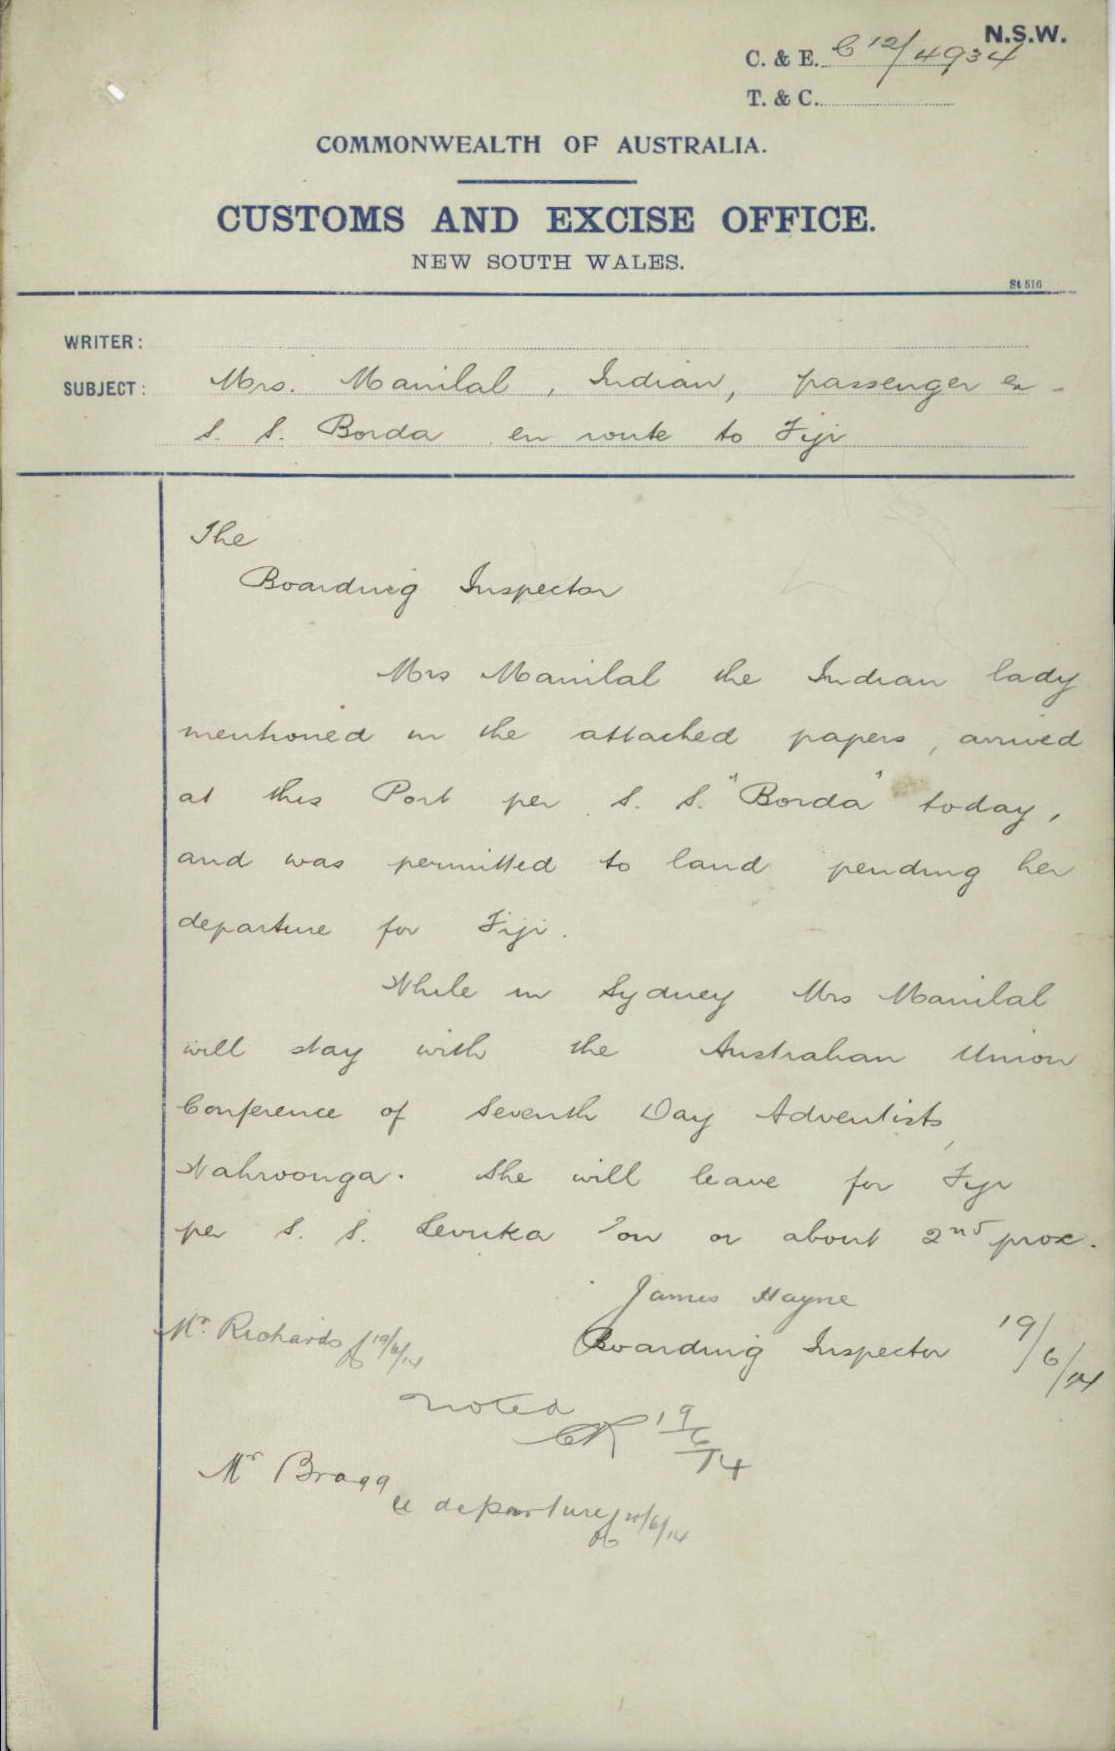 N.S.W.
C. & E. C 12/4934
T. & C.
COMMONWEALTH OF AUSTRALIA.
CUSTOMS AND EXCISE OFFICE.
NEW SOUTH WALES.
St 516
WRITER:
SUBJECT: Mrs. Manilal, Indian, passenger ex
S. S. Borda en route to Fiji
The
Boarding Inspector
Mrs Manilal the Indian lady
mentioned in the attached papers, arrived
at this Port per S. S. "Borda" today,
and was permitted to land pending her
departure for Fiji.
While in Sydney Mrs Manilal
will stay with the Australian Union
Conference of Seventh Day Adventists,
Wahroonga. She will leave for Fiji
per S. S. Levuka on or about 2nd prox.
James Hayne
Boarding Inspector 19/6/14
Mr. Richards 19/6/14
Noted
19/6/14
Mr Bragg
departure /6/14